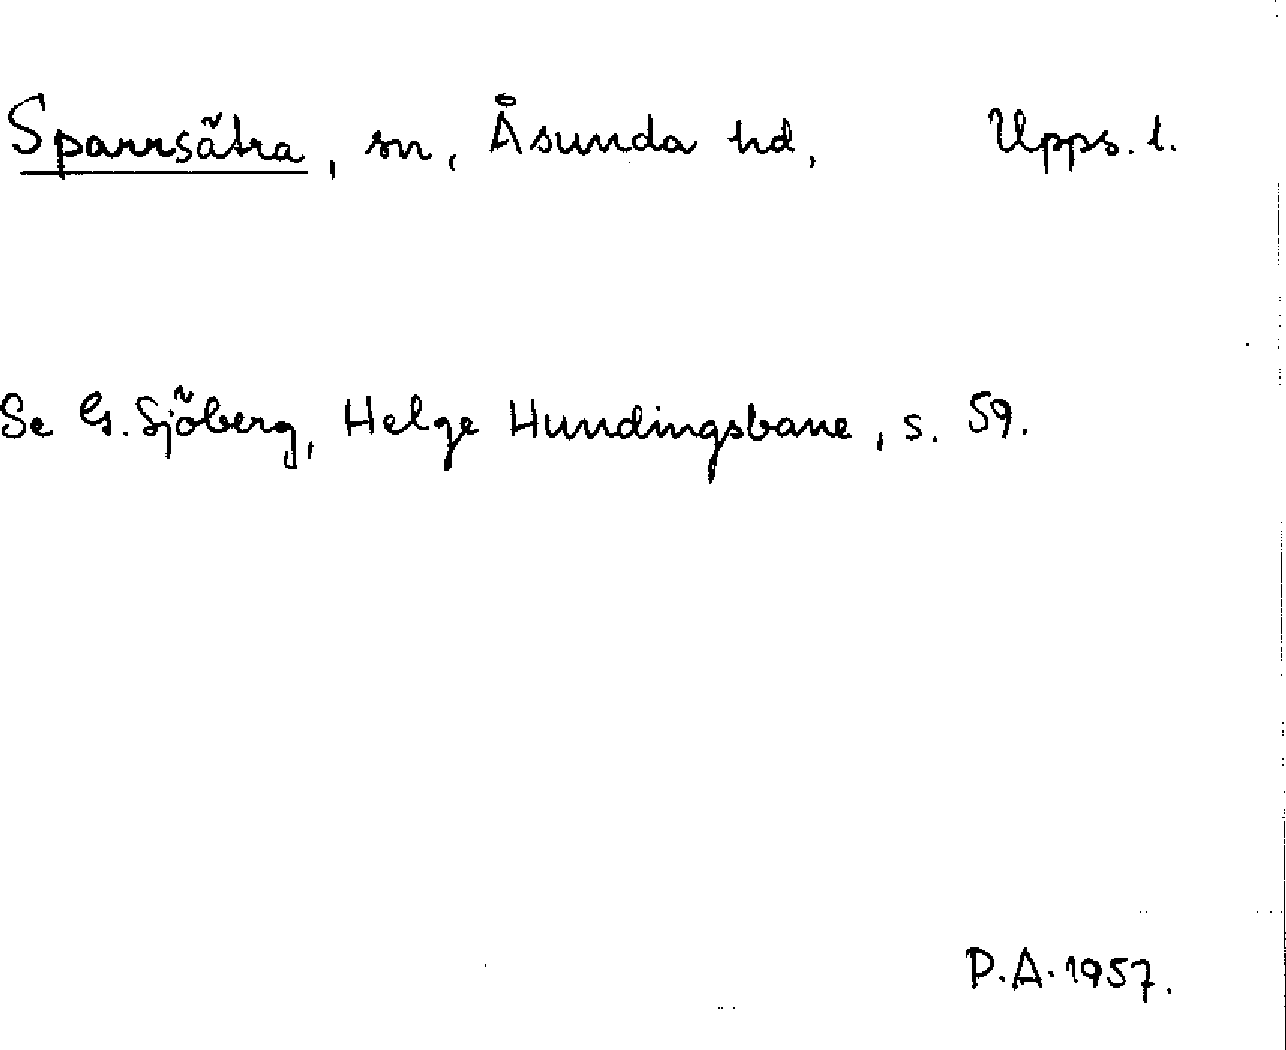 Sparrsätra, sn, Åsunda hd, Upps. l.
Se G. Sjöberg, Helge Hundingsbane, s. 59.
P.A. 1957.